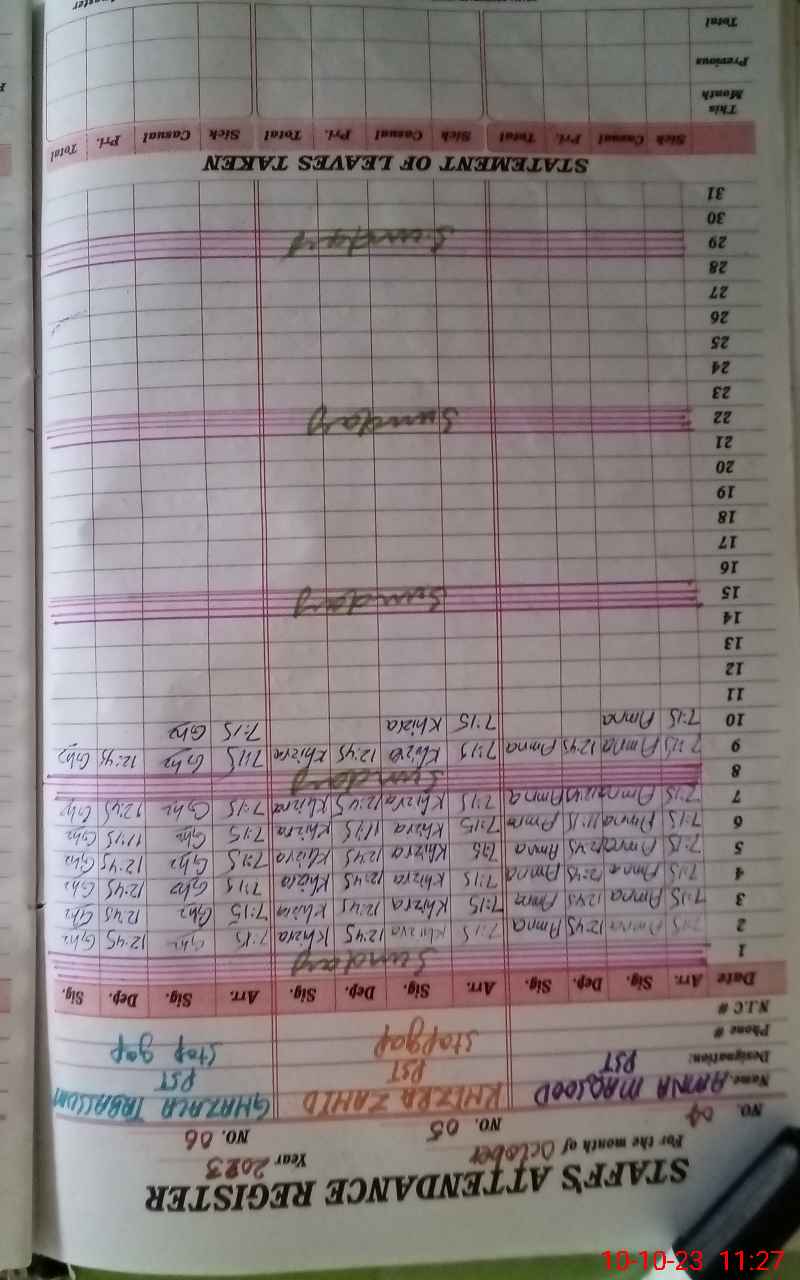 STAFF'S ATTENDANCE REGISTER
For the month of October Year 2023
NO. 04 NO. 05 NO. 06
Name. AMNA MAQSOOD KHIZRA ZAHID GHAZALA TABASSUM
Designation: PST PST PST
Phone # Stopgap Stop gap
N.I.C #
Date Arr. Sig. Dep. Sig. Arr. Sig. Dep. Sig. Arr. Sig. Dep. Sig.
1 Sunday
2 7:15 Amna 12:45 Amna 7:15 Khizra 12:45 Khizra 7:15 Ghz 12:45 Ghz
3 7:15 Amna 12:45 Amna 7:15 Khizra 12:45 Khizra 7:15 Ghz 12:45 Ghz
4 7:15 Amna 12:45 Amna 7:15 Khizra 12:45 Khizra 7:15 Ghz 12:45 Ghz
5 7:15 Amna 12:45 Amna 7:15 Khizra 12:45 Khizra 7:15 Ghz 12:45 Ghz
6 7:15 Amna 11:15 Amna 7:15 Khizra 11:15 Khizra 7:15 Ghz 11:15 Ghz
7 7:15 Amna 12:45 Amna 7:15 Khizra 12:45 Khizra 7:15 Ghz 12:45 Ghz
8 Sunday
9 7:15 Amna 12:45 Amna 7:15 Khizra 12:45 Khizra 7:15 Ghz 12:45 Ghz
10 7:15 Amna 7:15 Khizra 7:15 Ghz
11
12
13
14
15 Sunday
16
17
18
19
20
21
22 Sunday
23
24
25
26
27
28
29 Sunday
30
31
STATEMENT OF LEAVES TAKEN
Sick Casual Pri. Total Sick Casual Pri. Total Sick Casual Pri. Total
This Month
Previous
Total
10-10-23 11:27